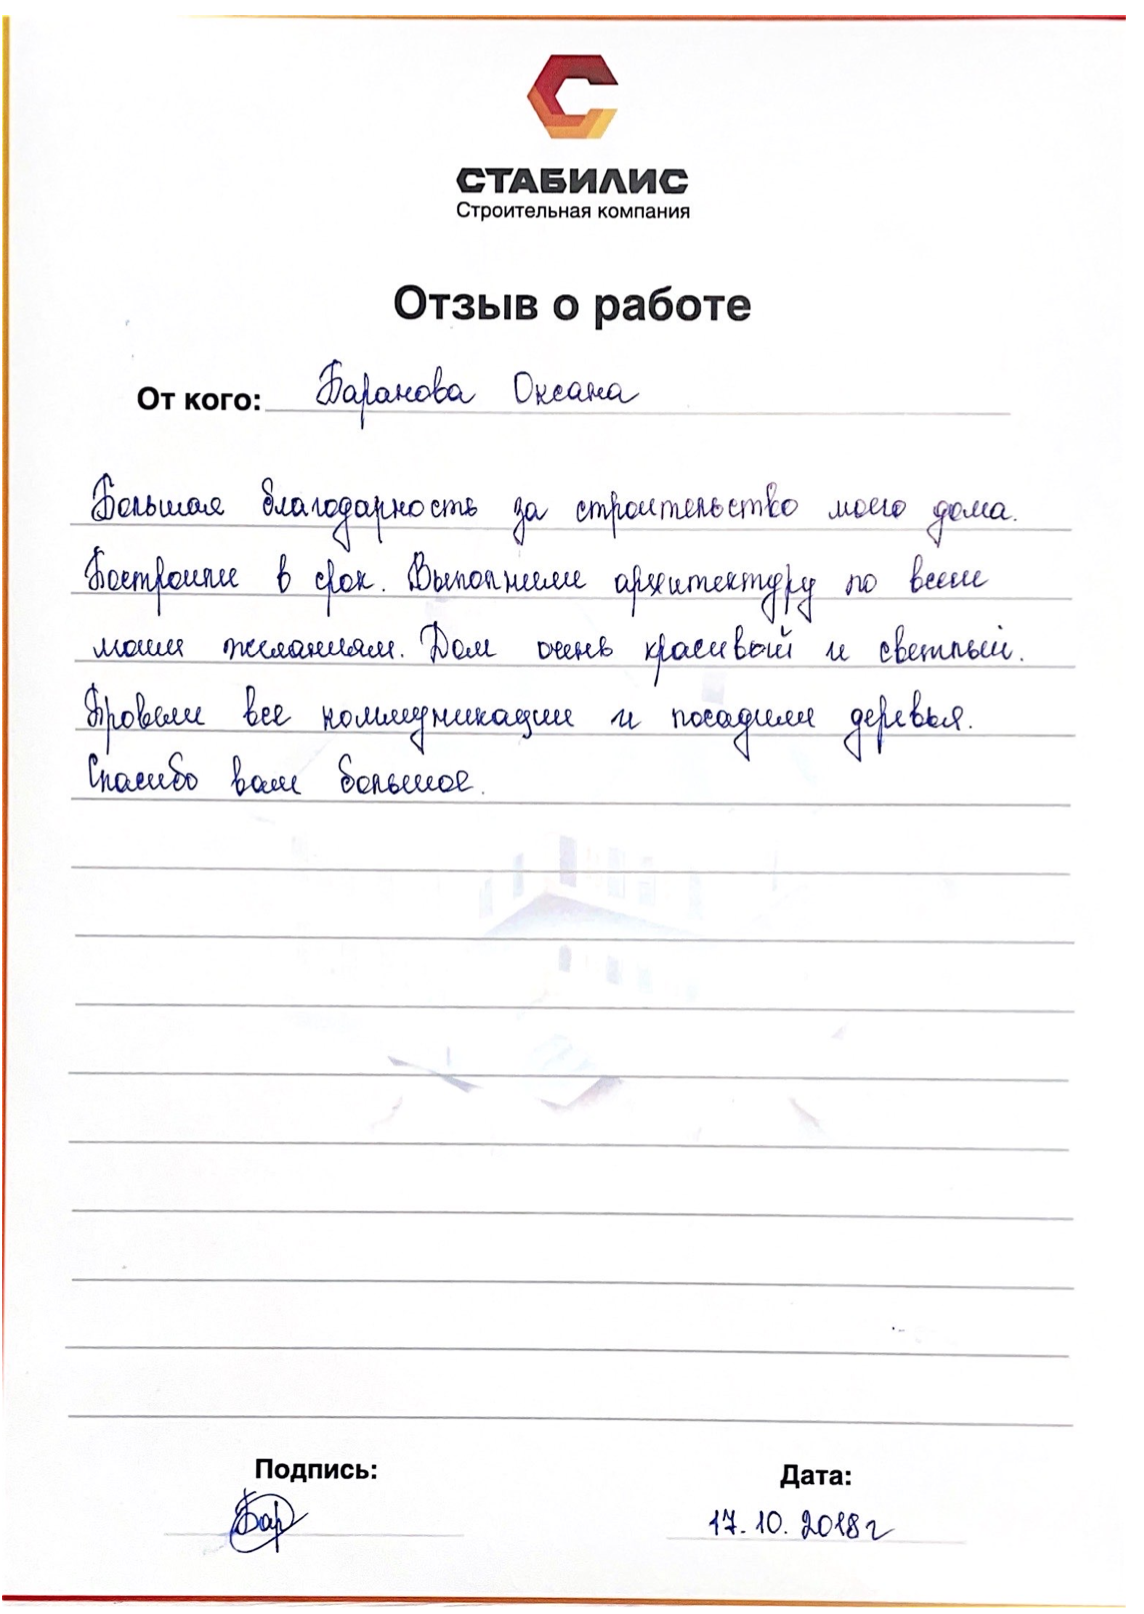 СТАБИЛИС
Строительная компания
Отзыв о работе
От кого: Баранова Оксана
Большая благодарность за строительство моего дома.
Построили в срок. Выполнили архитектуру по всем
моим желаниям. Дом очень красивый и светлый.
Провели все коммуникации и посадили деревья.
Спасибо вам большое.
Подпись: Дата:
Бар 17.10.2018г